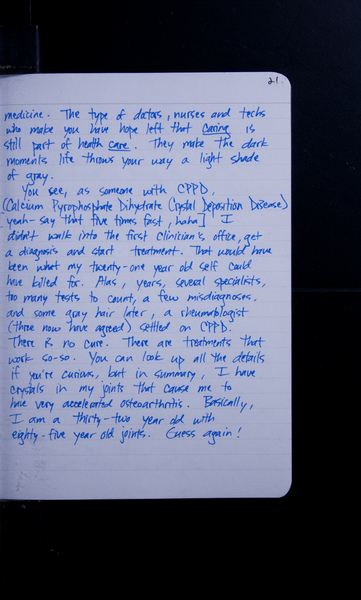 21
medicine. The type of doctors, nurses and techs
who make you have hope left that caring is
still part of health care. They make the dark
moments life throws your way a light shade
of gray.
You see, as someone with CPPD,
(Calcium Pyrophosphate Dihydrate Crystal Deposition Disease)
[yeah-say that five times fast, haha] I
didn't walk into the first clinician's office, get
a diagnosis and start treatment. That would have
been what my twenty-one year old self could
have killed for. Alas, years, several specialists,
too many tests to count, a few misdiagnoses,
and some gray hair later, a rheumatologist
(three now have agreed) settled on CPPD.
There is no cure. There are treatments that
work so-so. You can look up all the details
if you're curious, but in summary, I have
crystals in my joints that cause me to
have very accelerated osteoarthritis. Basically,
I am a thirty-two year old with
eighty-five year old joints. Guess again!